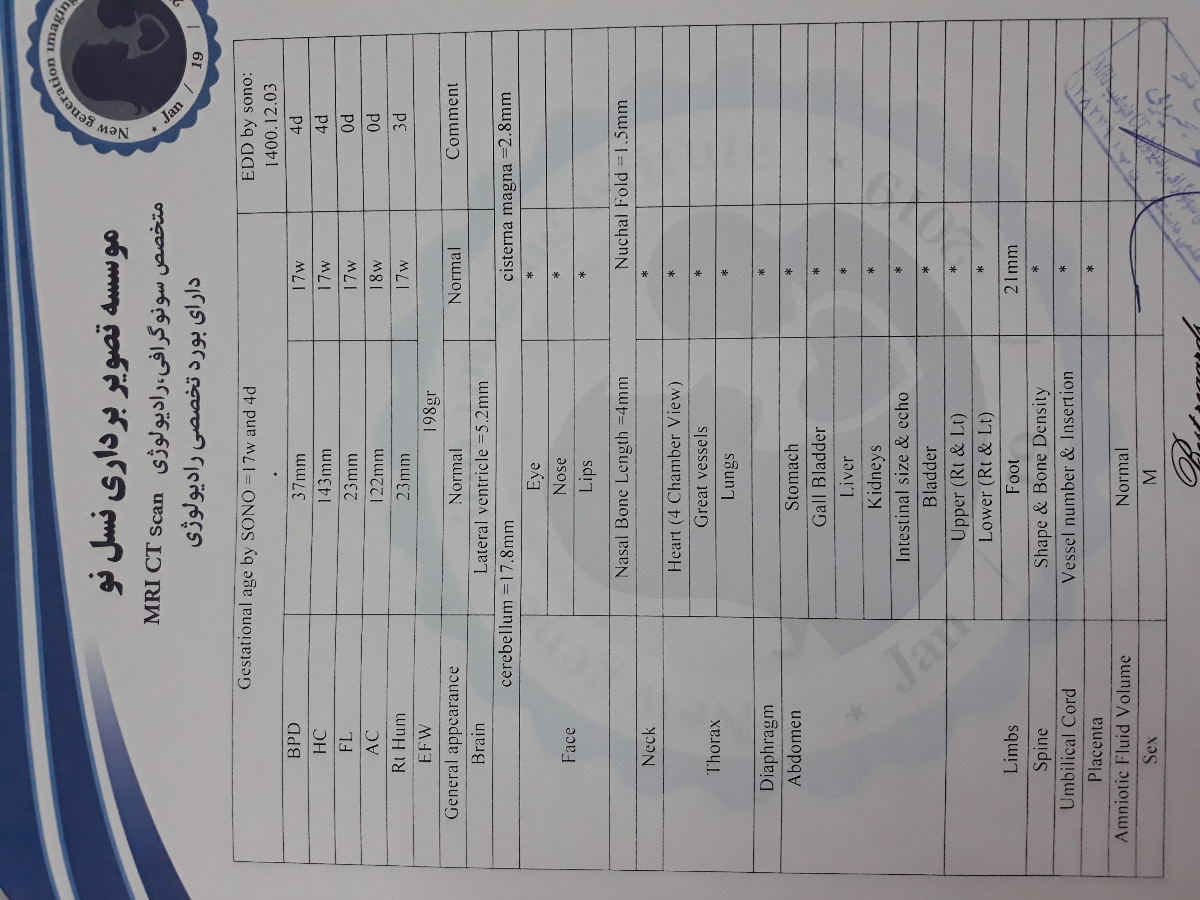 New generation imaging
* Jan / 19
موسسه تصویر برداری نسل نو
متخصص سونوگرافی،رادیولوژی MRI CT scan
دارای بورد تخصصی رادیولوژی
Gestational age by SONO =17w and 4d EDD by sono: 1400.12.03
BPD 37mm 17w 4d
HC 143mm 17w 4d
FL 23mm 17w 0d
AC 122mm 18w 0d
Rt Hum 23mm 17w 3d
EFW 198gr
General appearance Normal Normal Comment
Brain Lateral ventricle =5.2mm
cerebellum =17.8mm cisterna magna =2.8mm
Face Eye *
Nose *
Lips *
Nasal Bone Length =4mm Nuchal Fold =1.5mm
Neck *
Thorax Heart (4 Chamber View) *
Great vessels *
Lungs *
Diaphragm *
Abdomen Stomach *
Gall Bladder *
Liver *
Kidneys *
Intestinal size & echo *
Bladder *
Limbs Upper (Rt & Lt) *
Lower (Rt & Lt) *
Foot 21mm
Spine Shape & Bone Density *
Umbilical Cord Vessel number & Insertion *
Placenta *
Amniotic Fluid Volume Normal
Sex M
Jan
2019